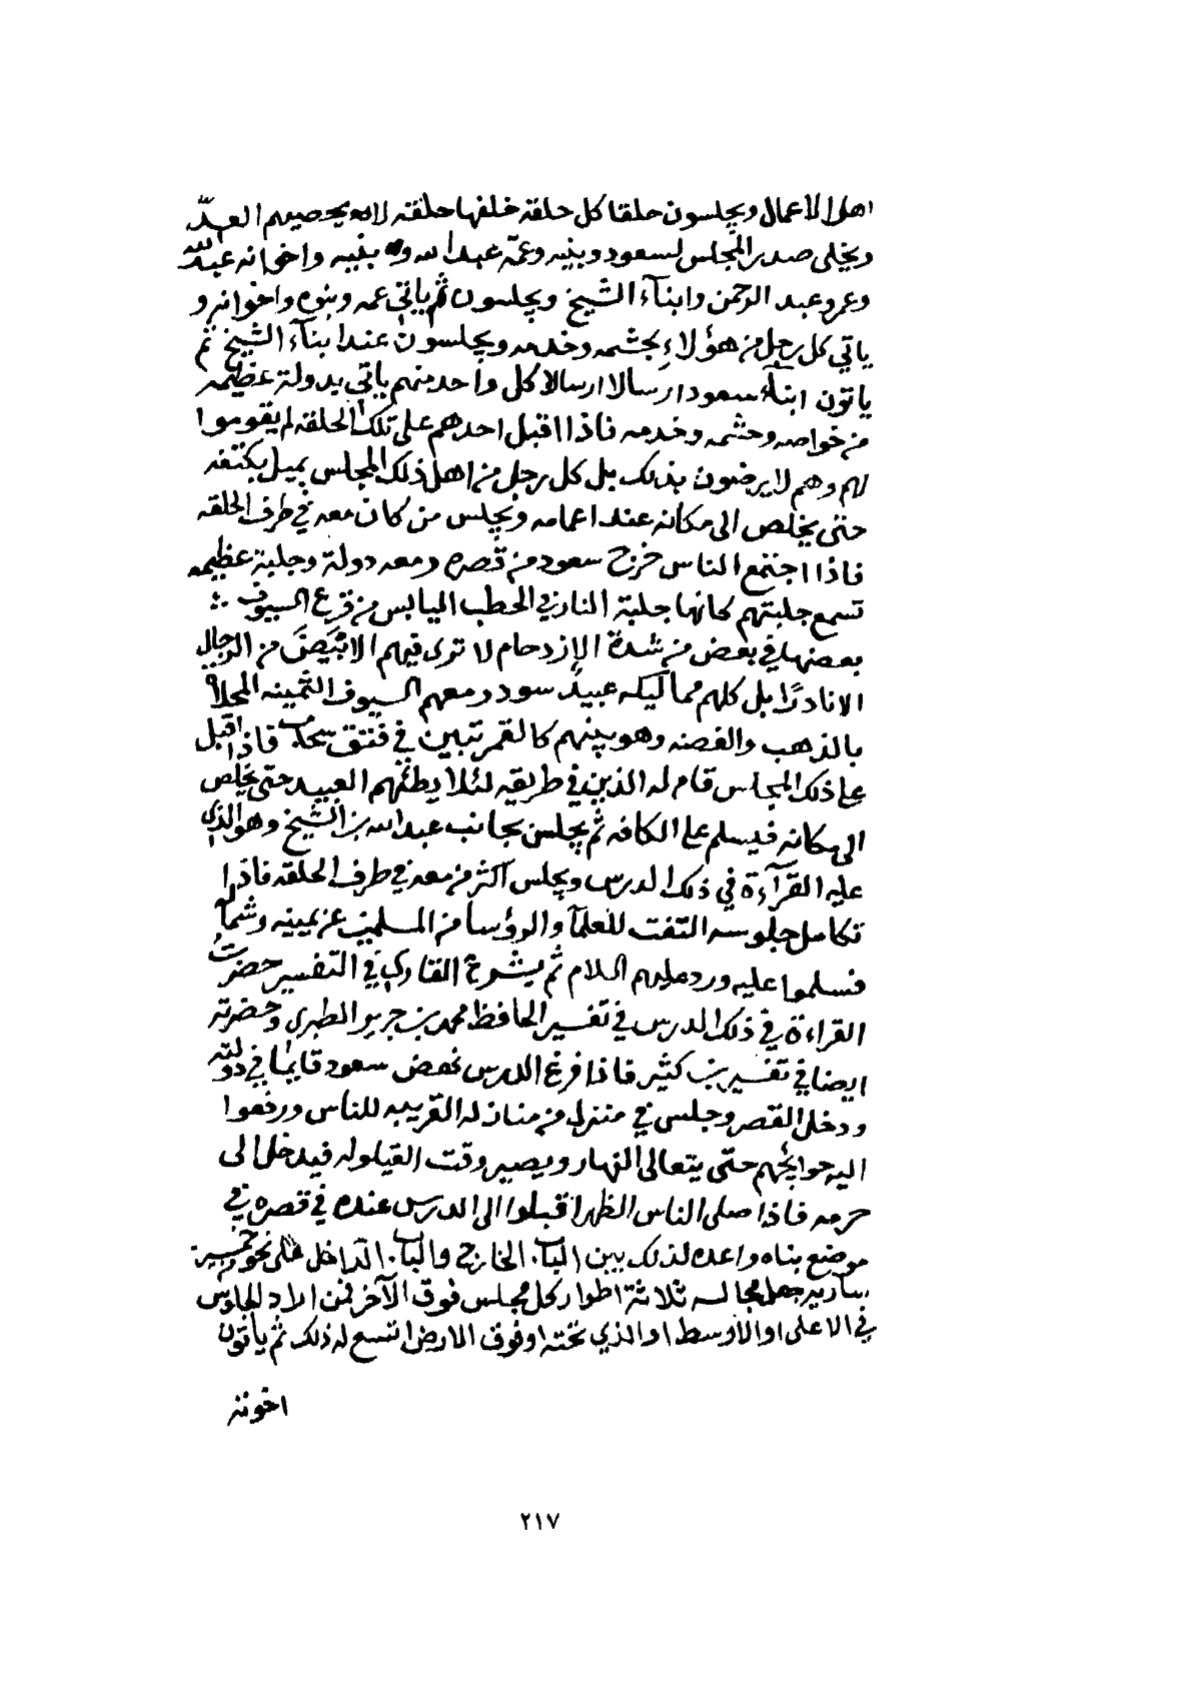 اهل الاعمال ويجلسون حلقا كل حلقة خلفها حلقة لا يحصيهم العدّ
ويخلى صدر المجلس لسعود وبنيه وعمّه عبدالله وبنيه واخوانه عبدالله
وعمر وعبد الرحمن وابنآء الشيخ ويجلسون ثم ياتي عمه وبنوه واخوانه و
ياتي كل رجل من هؤلاء بحشمه وخدمه ويجلسون عند ابنآء الشيخ ثم
ياتون ابنآء سعود ارسالا ارسالا كل واحد منهم ياتي بدولة عظيمه
من خواصه وحشمه وخدمه فاذا اقبل احدهم على تلك الحلقه لم يقوموا
لهم وهم لا يرضون بذلك بل كل رجل من اهل ذلك المجلس يميل بكتفه
حتى يخلص الى مكانه عند اعمامه ويجلس من كان معه في طرف الحلقه
فاذا اجتمع الناس خرج سعود من قصره ومعه دولة وجلبة عظيمه
تسمع جلبتهم كانها جلبة النار في الحطب اليابس من قرع السيوف
بعضها في بعض من شدة الإزدحام لا ترى فيهم الابيض من الرجال
الا نادرًا بل كلهم مماليكه عبيد سود ومعهم السيوف الثمينه المحلاة
بالذهب والفضه وهو بينهم كالقمر تبين في فتق سحاب فاذا اقبل
على ذلك المجلس قام له الذين في طريقه لئلا يطئهم العبيد حتى يخلص
الى مكانه فيسلم على الكافه ثم يجلس بجانب عبد الله بن الشيخ وهو الذي
عليه القرآءة في ذلك الدرس ويجلس اكثر من معه في طرف الحلقه فاذا
تكامل جلوسه التفت للعلمآء والرؤسا من المسلمين عن يمينه وشماله
فسلموا عليه ورد عليهم السلام ثم يشرع القاري في التفسير حضرت
القراءة في ذلك الدرس في تفسير الحافظ محمد بن جرير الطبري وحضرته
ايضا في تفسير بن كثير فاذا فرغ الدرس نهض سعود قايما في دولته
ودخل القصر وجلس في منزل من منازله القريبه للناس ورفعوا
اليه حوايجهم حتى يتعالى النهار ويصير وقت القيلوله فيدخل الى
حرمه فاذا صلى الناس الظهر اقبلوا الى الدرس عنده في قصره في
موضع بناه واعده لذلك بين الباب الخارج والباب الداخل على نحو خمسين
سارية جعل مجالسه ثلاثة اطوار كل مجلس فوق الآخر فمن اراد الجلوس
في الاعلى او الاوسط او الذي تحته او فوق الارض اتسع له ذلك ثم ياتون
اخوته
٢١٧